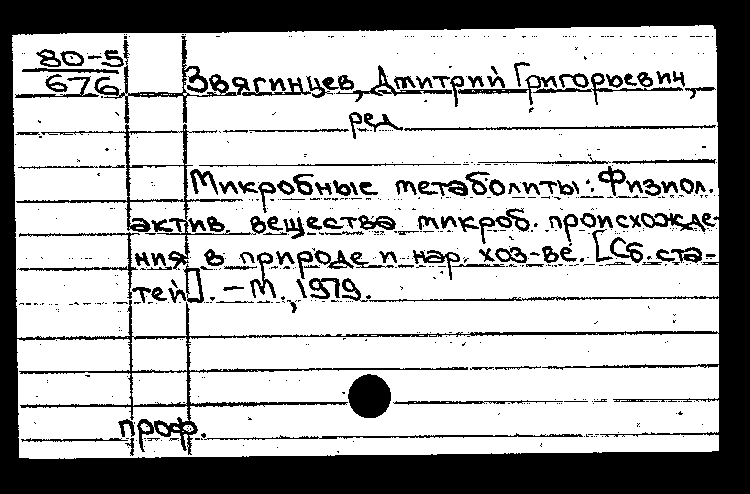 80-5
676
Звягинцев, Дмитрий Григорьевич,
ред
Микробные метаболиты: Физиол.
актив. вещества микроб. происхожде-
ния в природе и нар. хоз-ве. [Сб. ста-
тей]. – М., 1979.
проф.